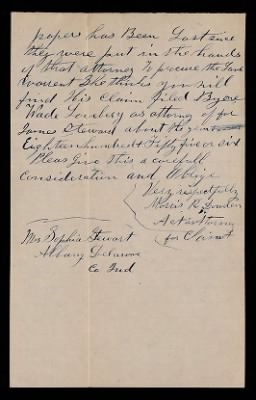 papers has Been Lost since
they were put in the hands
of that attorney to procure the Land
warrent She thinks you will
find this Claim filed By
Wade as attorney for
James Steward about the year
Eighteen hundred & Fifty five or six
Pleas Give this a carefull
consideration and oblige
Very respectfully
Morris R.
Act as Attorney
for Claimt
Mrs Sophia Stewart
Albany Delaware
Co Ind